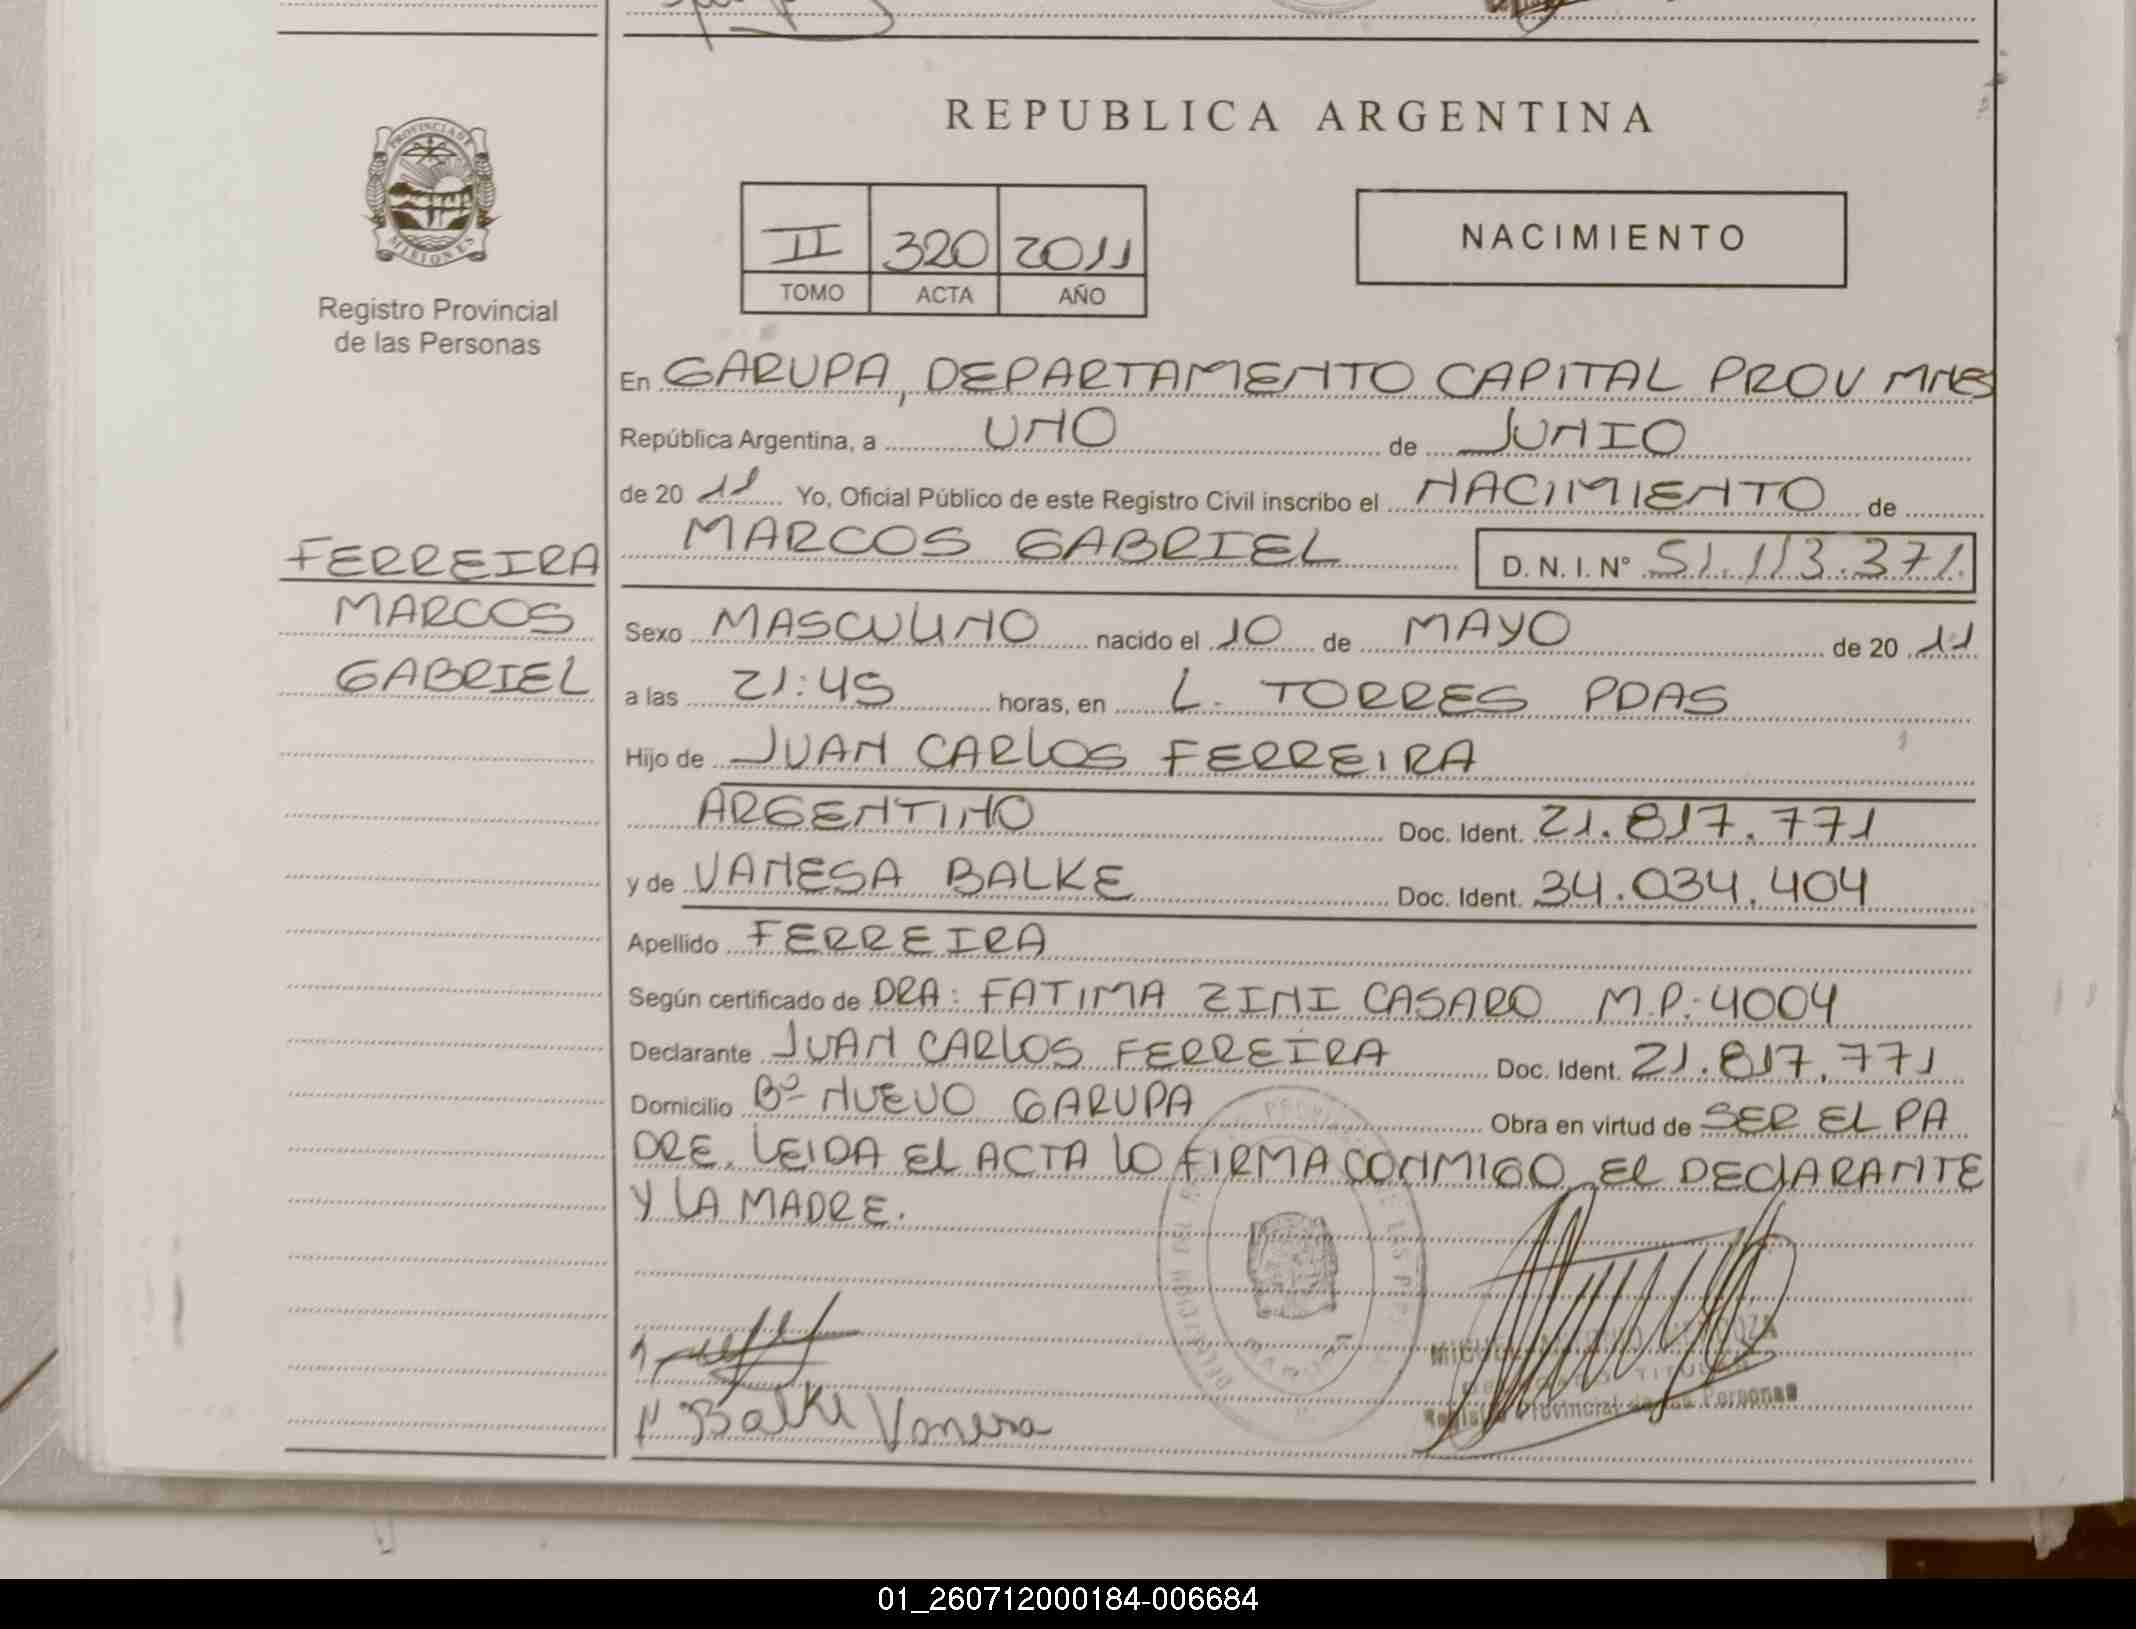 REPUBLICA ARGENTINA
PROVINCIA DE
MISIONES
Registro Provincial
de las Personas
II 320 2011
TOMO ACTA AÑO
NACIMIENTO
En GARUPA, DEPARTAMENTO CAPITAL PROV MNES
República Argentina, a UNO de JUNIO
de 20 11 Yo, Oficial Público de este Registro Civil inscribo el NACIMIENTO de
MARCOS GABRIEL D. N. I. Nº 51.113.371.
FERREIRA
MARCOS
GABRIEL
Sexo MASCULINO nacido el 10 de MAYO de 20 11
a las 21:45 horas, en L. TORRES PDAS
Hijo de JUAN CARLOS FERREIRA
ARGENTINO Doc. Ident. 21.817.771
y de VANESA BALKE Doc. Ident. 34.034.404
Apellido FERREIRA
Según certificado de DRA: FATIMA ZINI CASARO M.P.:4004
Declarante JUAN CARLOS FERREIRA Doc. Ident. 21.817.771
Domicilio Bº NUEVO GARUPA Obra en virtud de SER EL PA
DRE. LEIDA EL ACTA LO FIRMA CONMIGO EL DECLARANTE
Y LA MADRE.
Balke Vanesa
Registro Provincial de las Personas
01_260712000184-006684